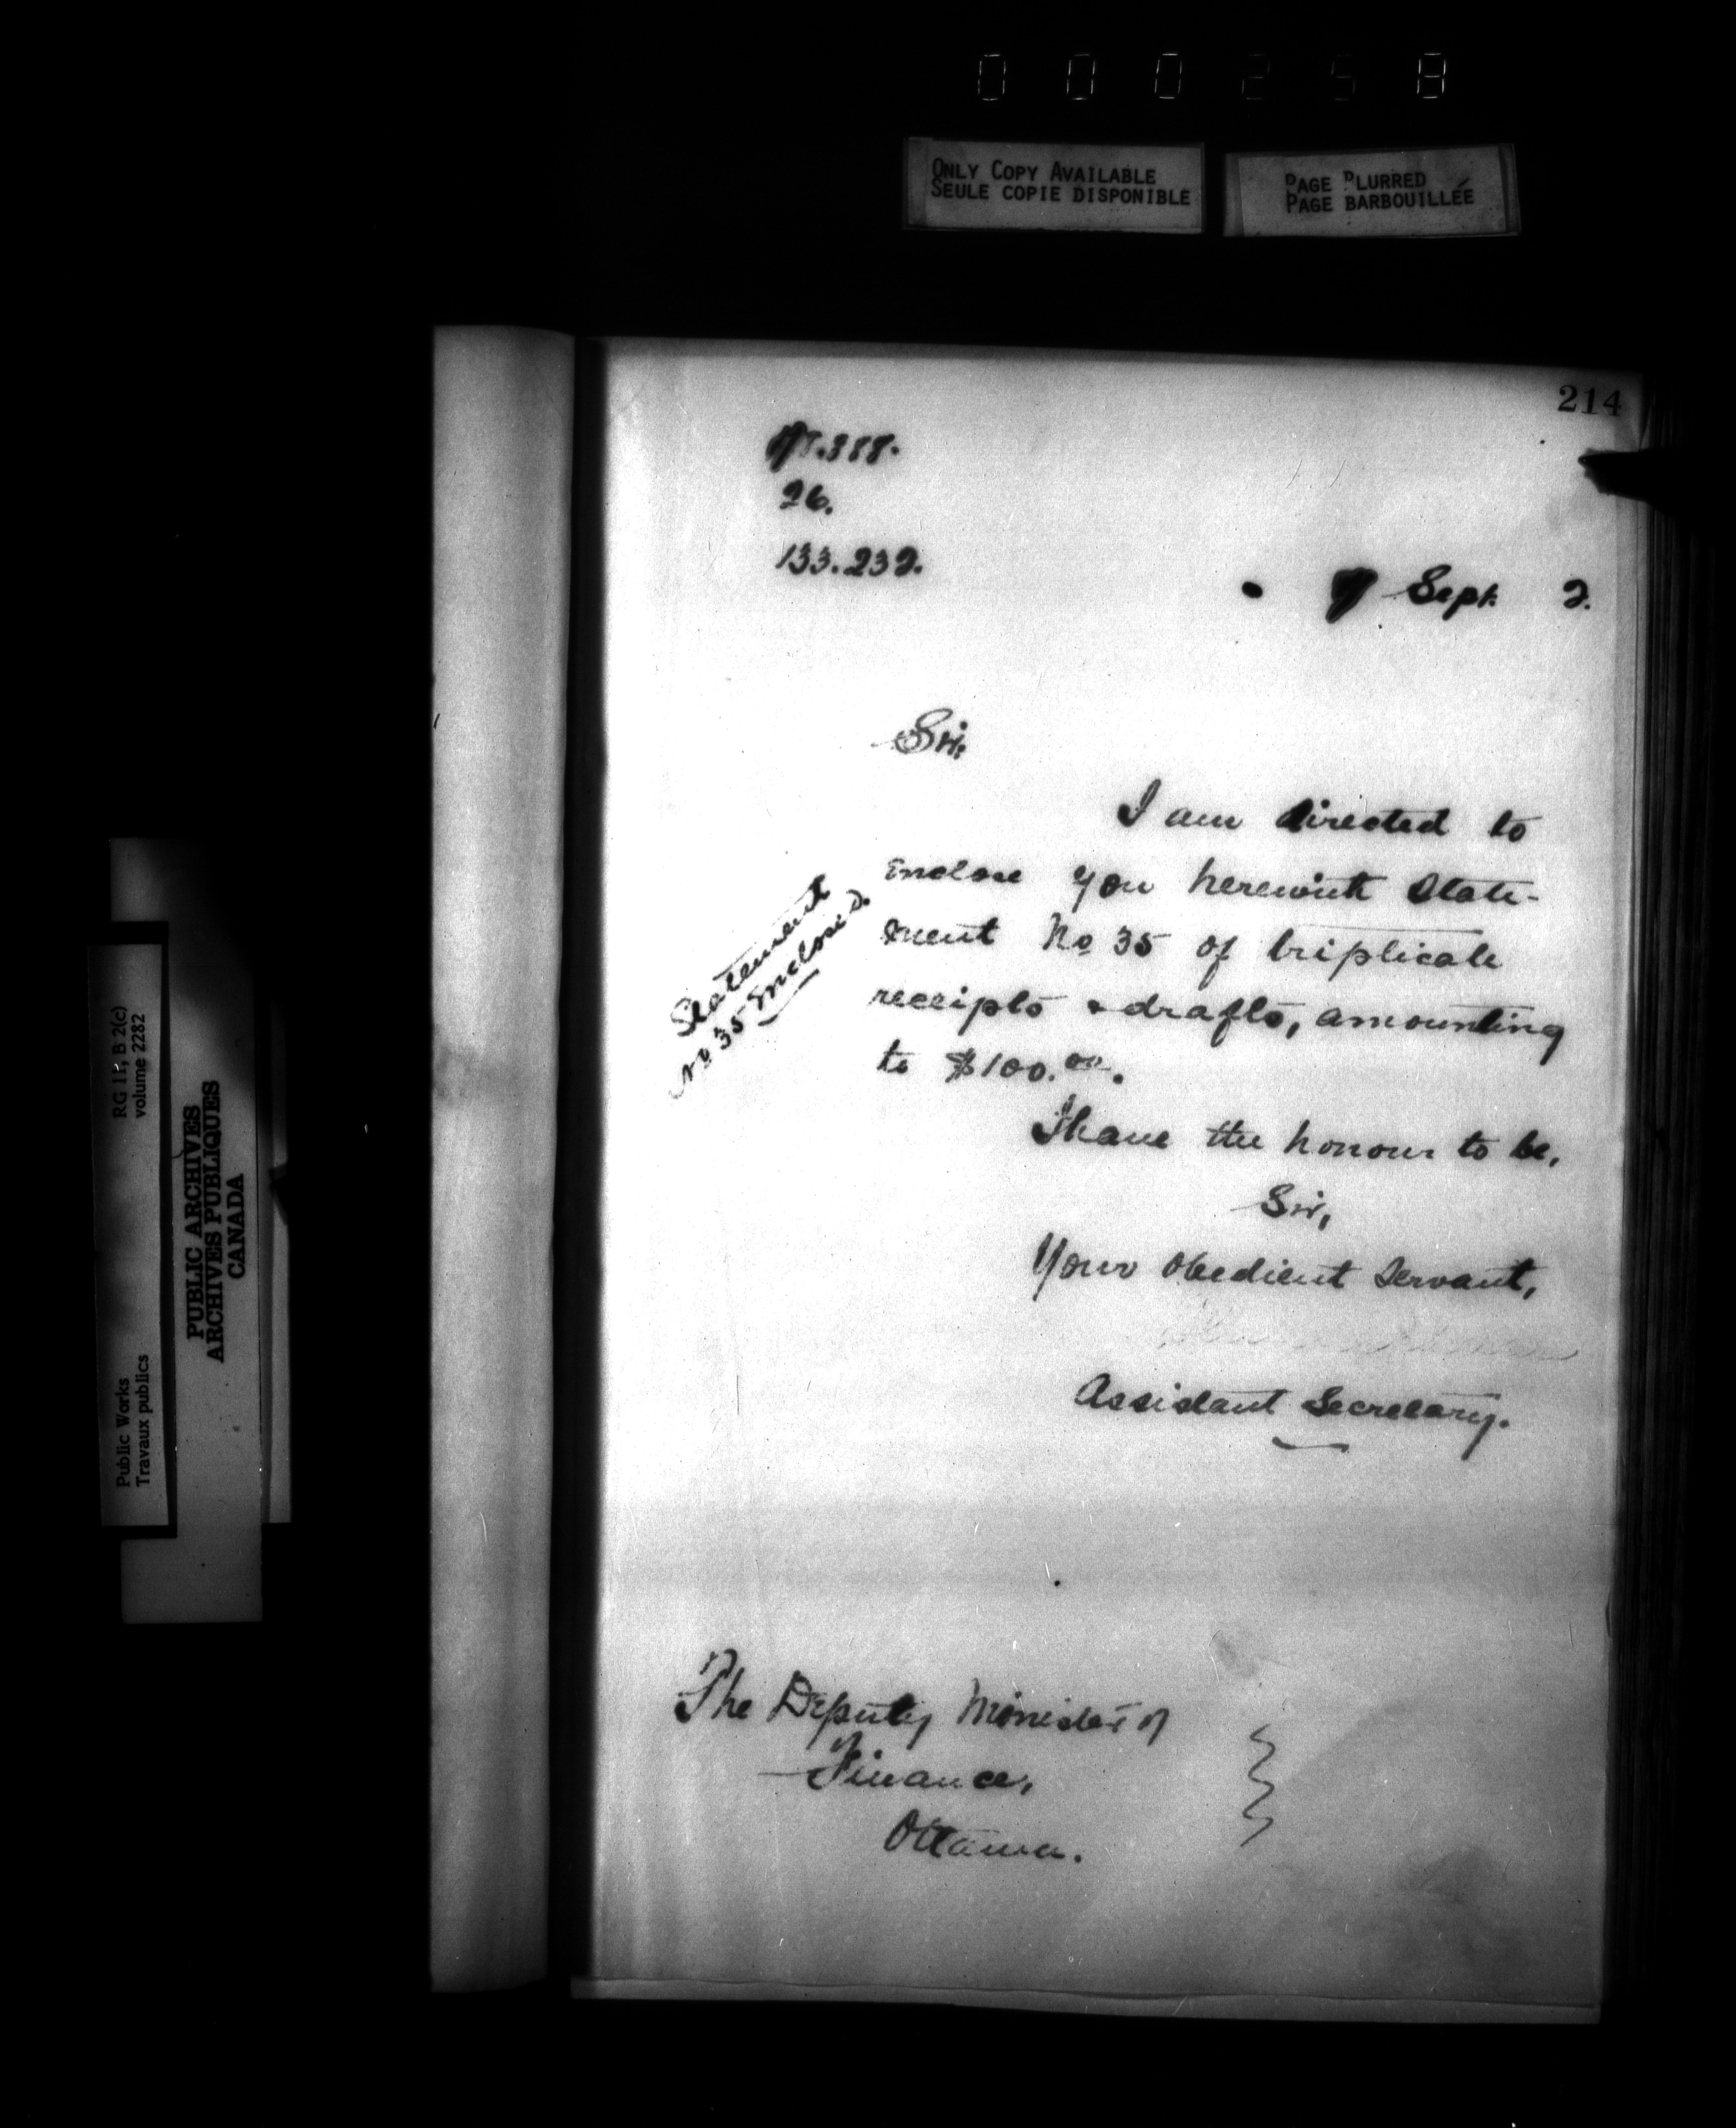 000258
ONLY COPY AVAILABLE
SEULE COPIE DISPONIBLE
PAGE BLURRED
PAGE BARBOUILLÉE
214
.388.
26.
133.232.
Sept. 2.
Sir,
I am directed to
enclose you herewith State-
ment No 35 of triplicate
receipts & drafts, amounting
to $100.00.
Statement
No 35 Enclosed.
I have the honour to be,
Sir,
Your Obedient Servant,
Assistant Secretary.
The Deputy Minister of
Finance,
Ottawa.
RG 11, B 2(c)
volume 2282
Public Works
Travaux publics
PUBLIC ARCHIVES
ARCHIVES PUBLIQUES
CANADA